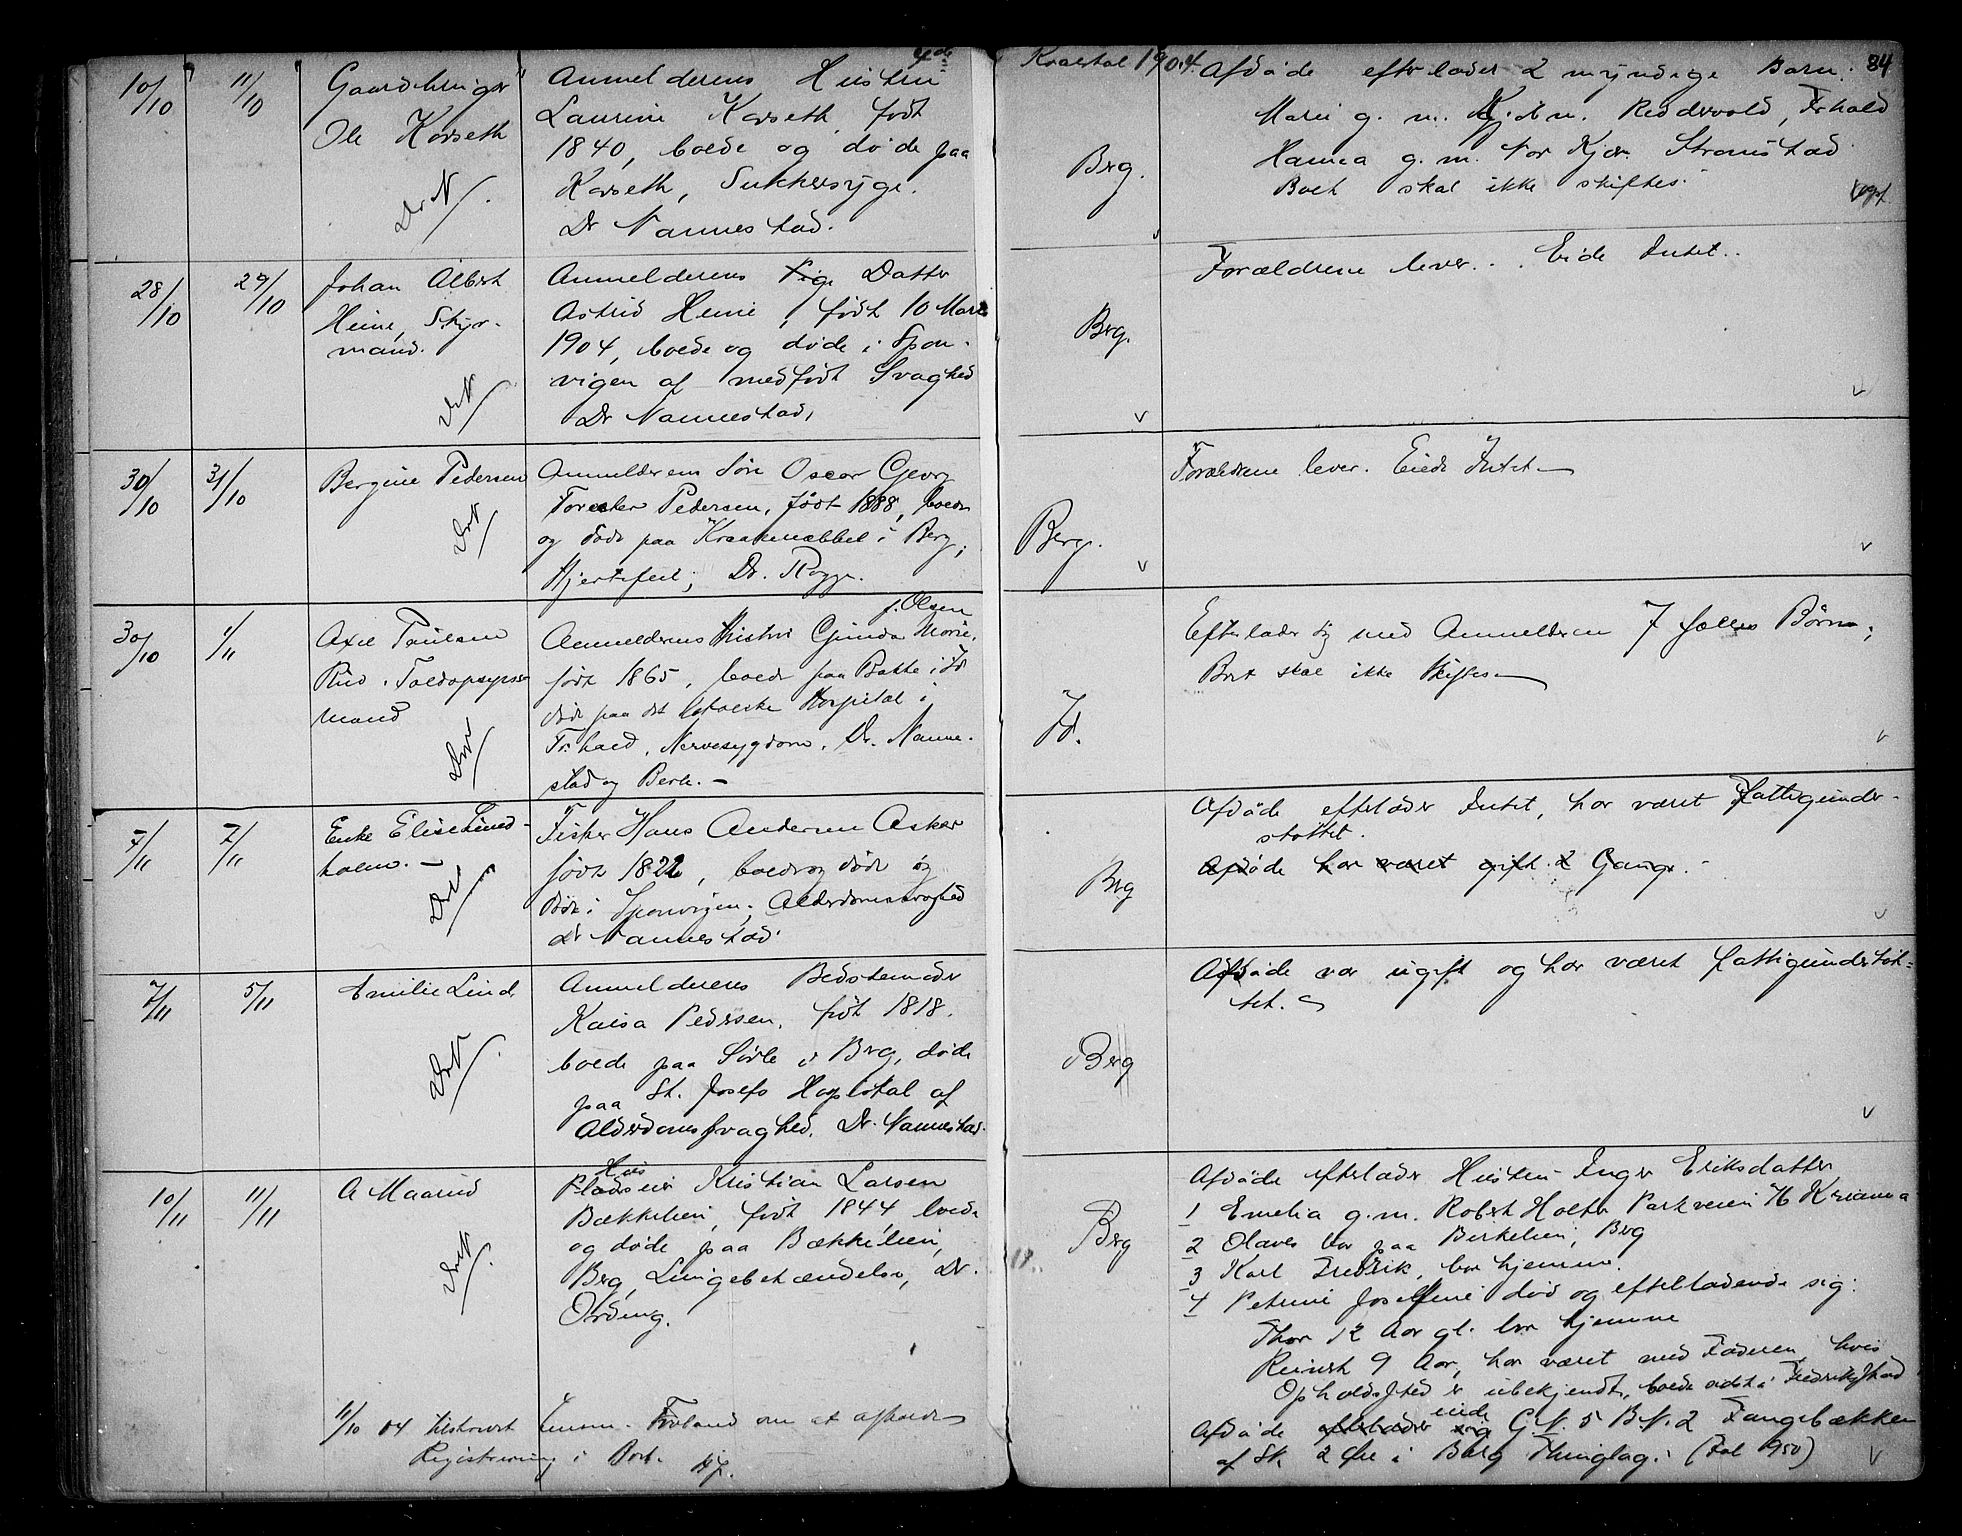 4de Kvartal 1904.
84
10/10
11/10
Gaardbruger
Ole Korseth
Dr N.
Anmelderens Hustru
Laurine Korseth, født
1840, boede og døde paa
Korseth, Sukkersyge.
Dr Nannestad.
Berg.
Afdøde efterlader 2 myndige Barn:
Marie g. m. Kjøbm. Reddervold, Frhald
Hanna g. m. Tor Kjær Strømstad
Boet skal ikke skiftes.
28/10
29/10
Johan Albert
Heine, Styr-
mand.
DrN
Anmelderens Datter
Astrid Heine, født 10 Mars
1904, boede og døde i Spon-
vigen af medfødt Svaghed
Dr Nannestad,
Berg.
Forældrene lever. Eide Intet.
30/10
31/10
Bergine Pedersen
DrN
Anmelderens Søn Oscar Georg
Pedersen, født 1888, boede
og døde paa Kraakenæbbet i Berg,
Hjertefeil; Dr. Rogge.
Berg.
Forældrene lever. Eiede Intet
30/10
1/11
Axel Paulsen
Rud. Toldopsyns-
mand
DrN
f. Olsen
Anmelderens Hustru Gunda Marie,
født 1865, boede paa Bakke i Id
døde paa det Hospital i
Fr.hald, Nervesygdom. Dr. Nanne-
stad og
Id.
Efterlader sig med Anmelderen 7 fælles Børn;
Boet skal ikke skiftes
7/11
7/11
Enke Elise Lind-
holm.
DrN
Fisker Hans Andersen Asker
født 1822, boede og døde og
døde i Sponvigen; Alderdomssvaghed
Dr Nannestad.
Berg
Afdøde efterlader Intet, har været fattigunder-
støttet.
Afdøde har været gift 2 Gange.
7/11
5/11
Emilie Lind.
DrN
Anmelderens Bedstemoder
Kaisa Pedersen, født 1818.
boede paa Sørle i Berg, døde
paa St. Josefs Hospital af
Alderdomssvaghed. Dr. Nannestad.
Berg
Afdøde var ugift og har været fattigunderstøt-
tet.
10/11
11/11
A Maarud
DrN
Hus
Pladseier Kristian Larsen
Bækkelien, født 1844, boede
og døde paa Bækkelien,
Berg, Lungebetændelse, Dr.
Ording.
Berg
Afdøde efterlader Hustru Inger Eriksdatter
1 Emelia g. m. Robert Holter Parkveien 76 Kriania
2 Olaves bor paa Birkelien, Berg
3 Karl Fredrik, bor hjemme.
4 Petrine Josefine død og efterladende sig:
Thor 12 Aar gl. bor hjemme
Reinert 9 Aar, har været med Faderen, hvis
Opholdssted er ubekjendt, boede sidst i Fredrikshald
eiede
Afdøde efterlader sig G.N. 5 B.N. 2 Tangebækken
af Sk. 2 Øre i Berg Thinglag. (Fol 950)
11/10 04 tilskrevet Lensm. Froland om at afholde
Registrering i Boet.